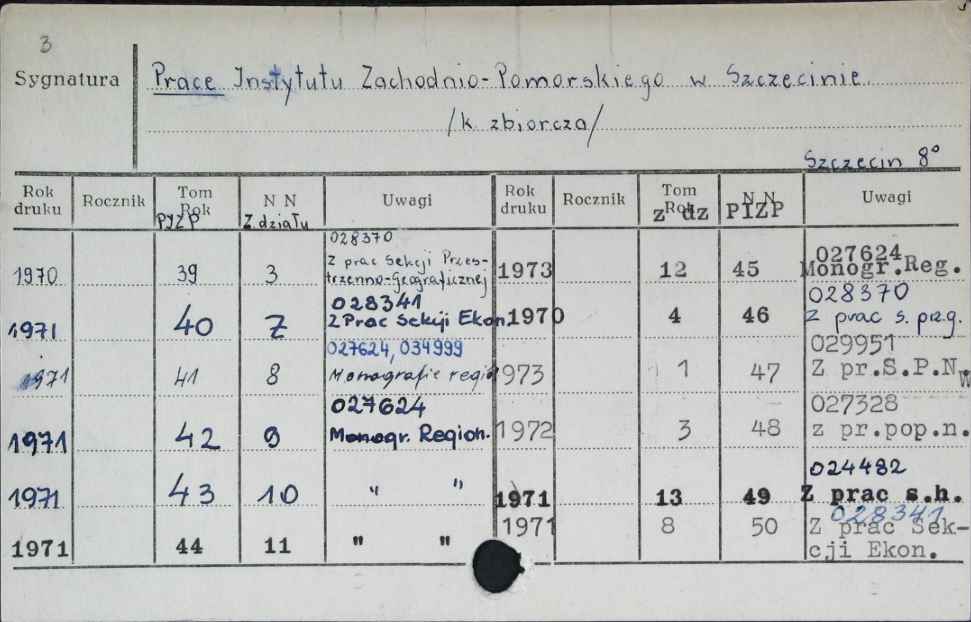 3
Sygnatura
Prace Instytutu Zachodnio-Pomorskiego w Szczecinie.
/k zbiorcza/
Szczecin 8°
Rok druku Rocznik Tom Rok PIZP N N Z działu Uwagi
1970 39 3 028370 Z prac Sekcji Przes-
trzenno-Geograficznej
1971 40 7 028341 Z Prac Sekcji Ekon.
1971 41 8 027624, 034999 Monografie regio
1971 42 9 027624 Monogr. Region.
1971 43 10 " "
1971 44 11 " "
Rok druku Rocznik Tom Rok z dz N N PIZP Uwagi
1973 12 45 027624 Monogr.Reg.
1970 4 46 028370 Z prac s. prz.g.
1973 1 47 029951 Z pr.S.P.N.W
1972 3 48 027328 z pr.pop.n.
1971 13 49 024482 Z prac s.h.
1971 8 50 028341 Z prac Sek-
cji Ekon.